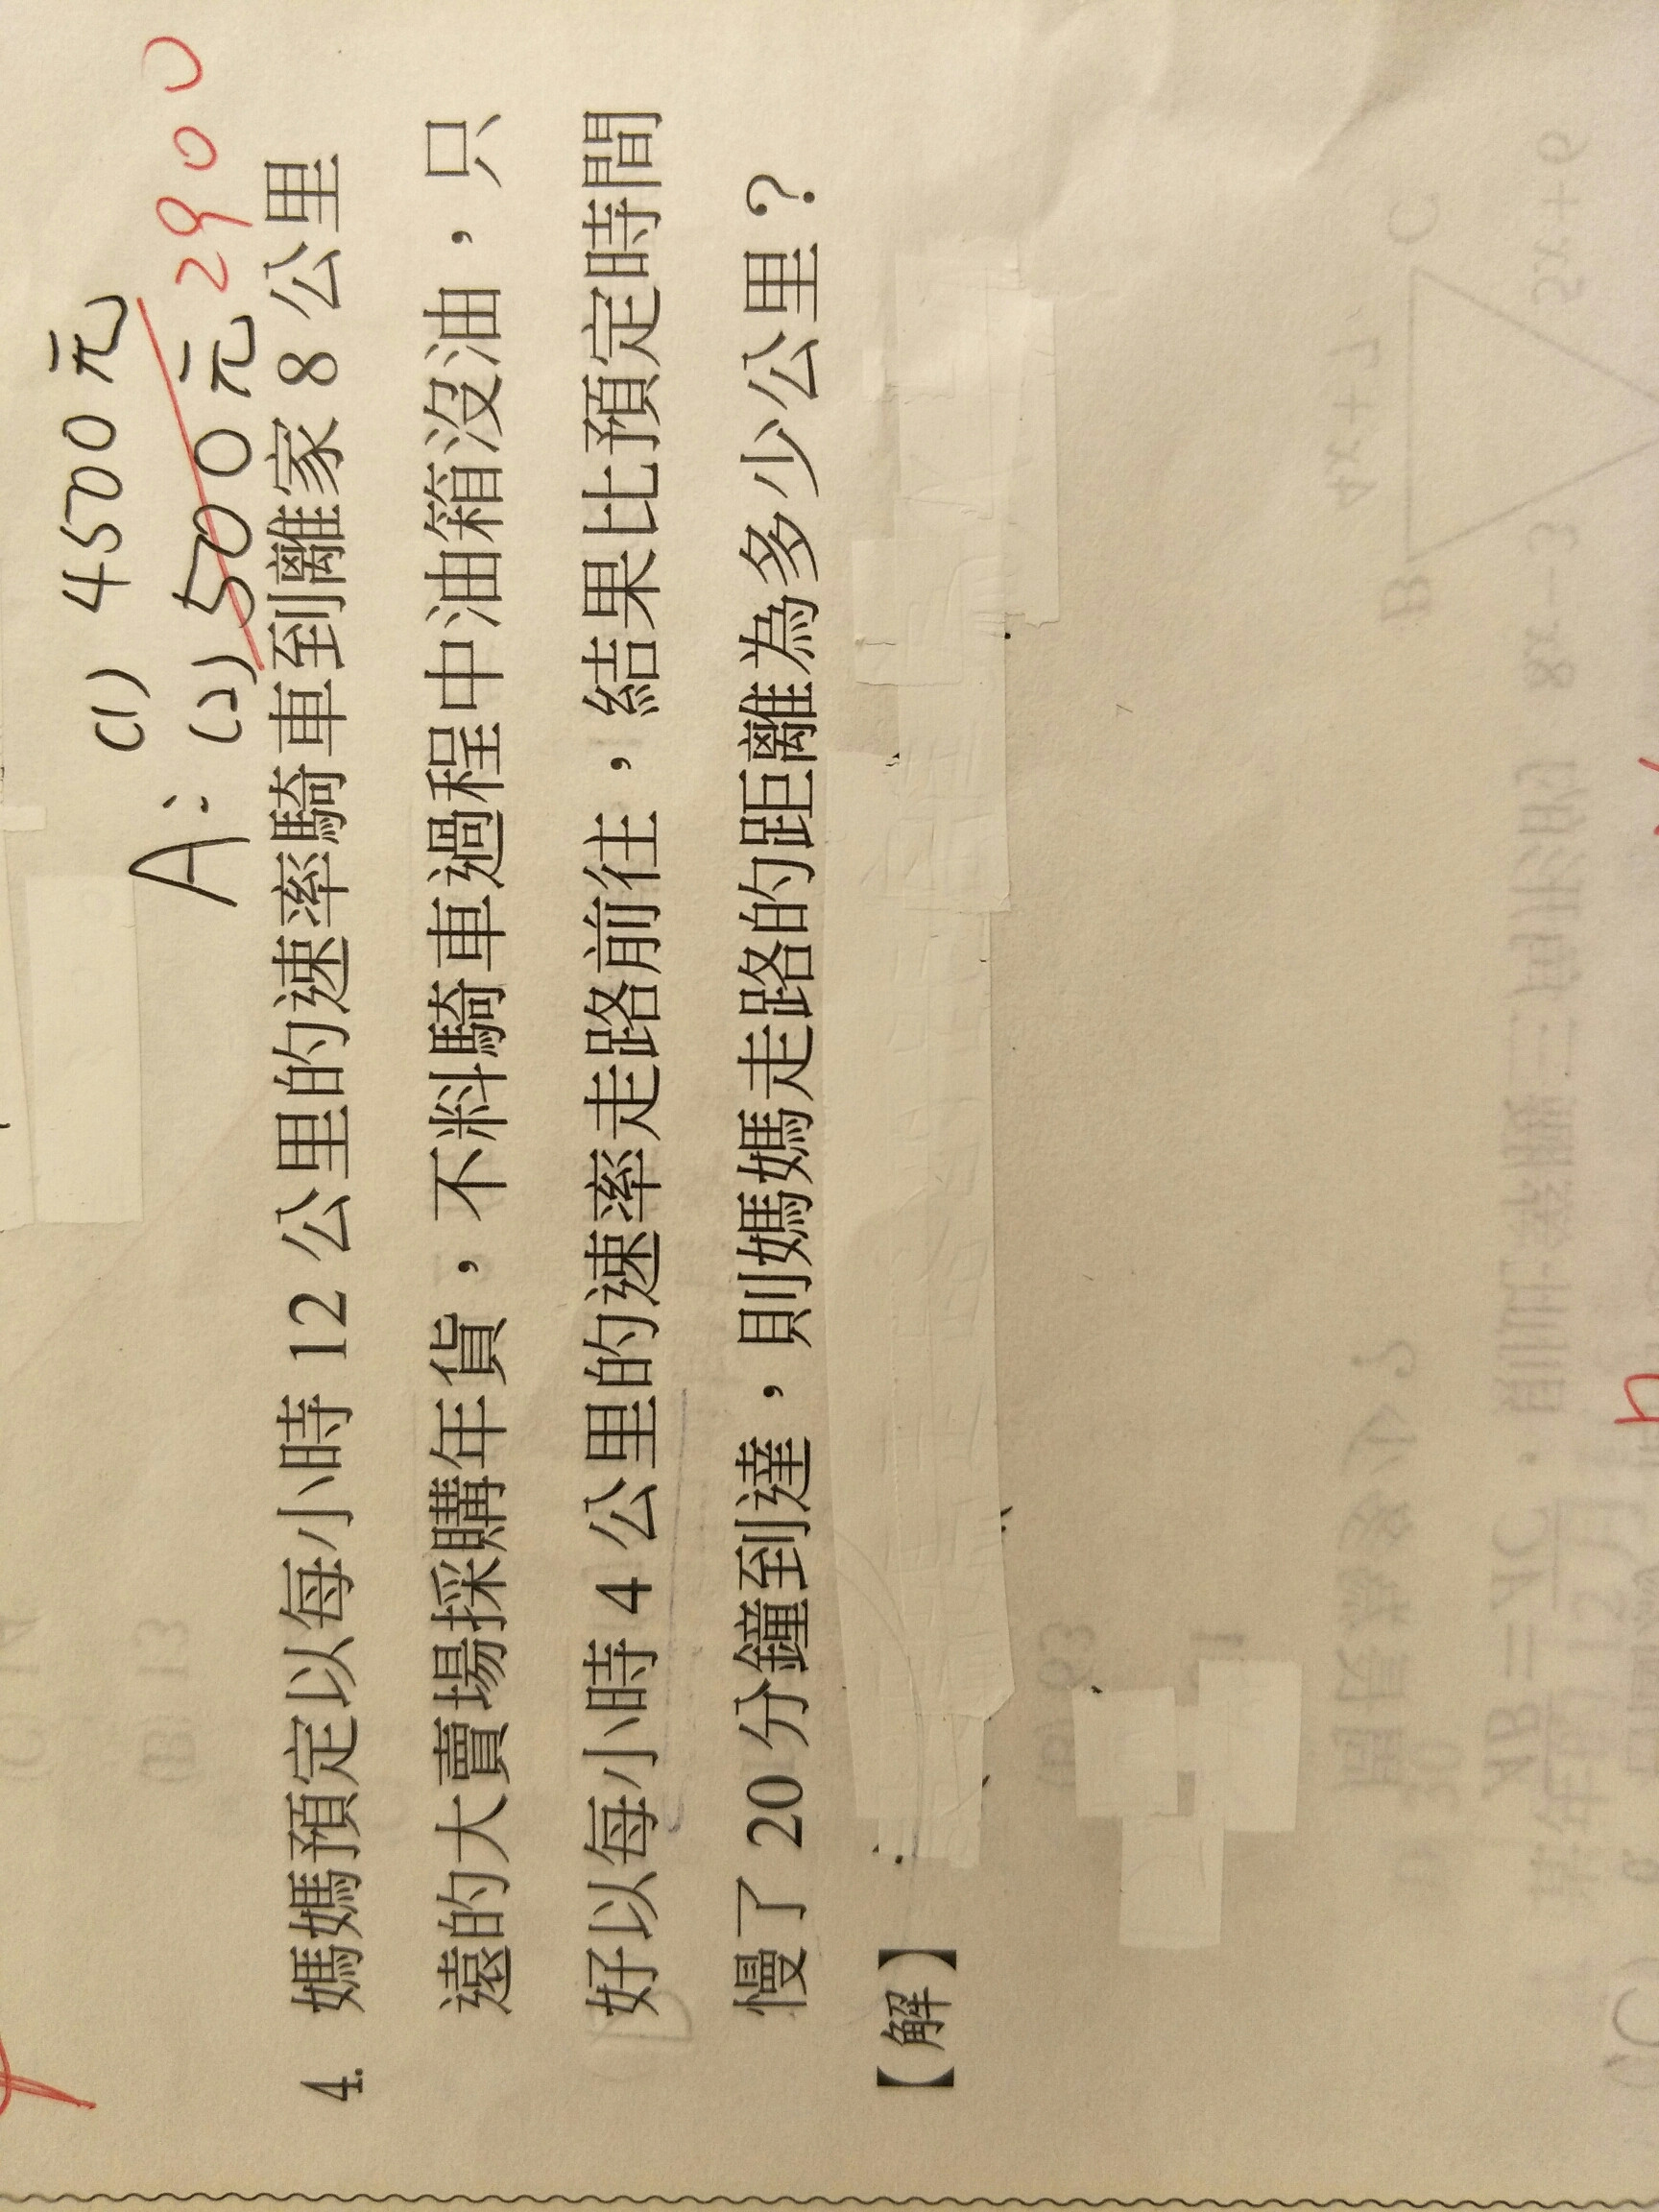 (1) 4500元
A:(2) 500元 2900
4. 媽媽預定以每小時 12 公里的速率騎車到離家 8 公里
遠的大賣場採購年貨，不料騎車過程中油箱沒油，只
好以每小時 4 公里的速率走路前往，結果比預定時間
慢了 20 分鐘到達，則媽媽走路的距離為多少公里？
【解】